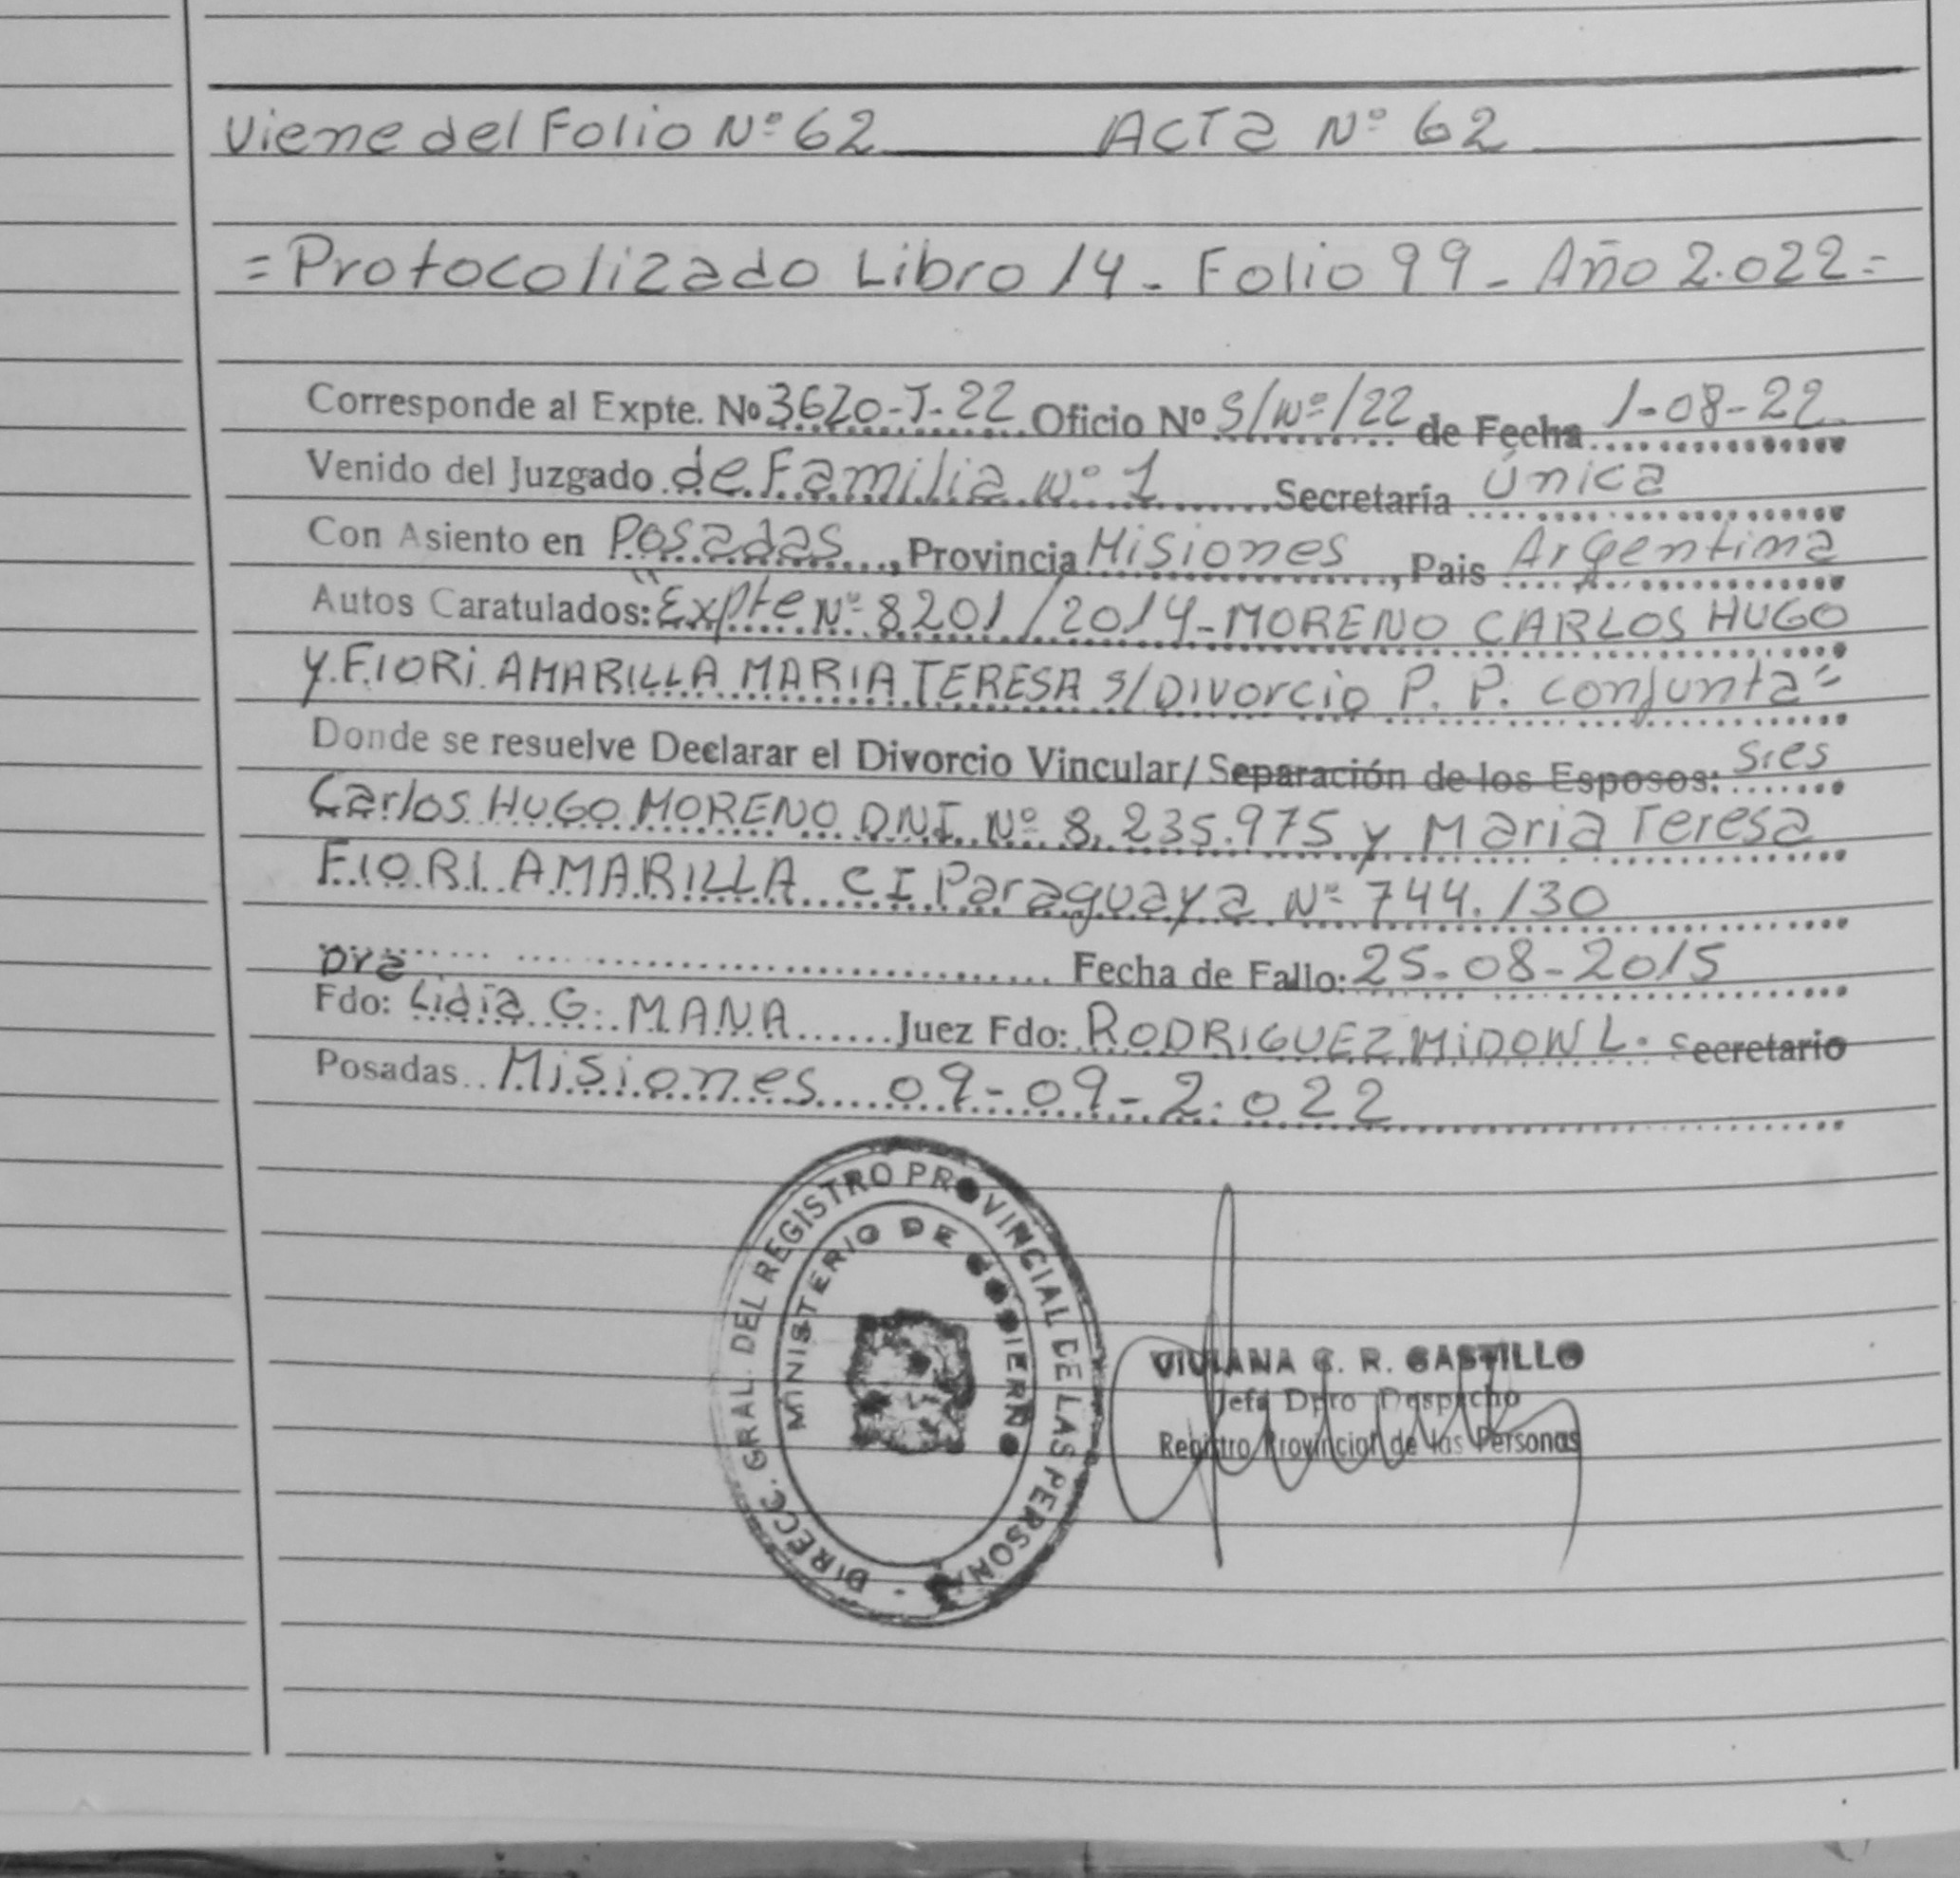 Viene del Folio Nº 62 Acta Nº 62
= Protocolizado Libro 14 - Folio 99 - Año 2.022 =
Corresponde al Expte. Nº 3620-J-22 Oficio Nº S/Nº/22 de Fecha 1-08-22
Venido del Juzgado de Familia Nº 1 Secretaría Única
Con Asiento en Posadas, Provincia Misiones, Pais Argentina
Autos Caratulados: "Expte Nº 8201/2014-MORENO CARLOS HUGO
Y FIORI AMARILLA MARIA TERESA S/Divorcio P. P. Conjunta"
Donde se resuelve Declarar el Divorcio Vincular/Separación de los Esposos: Sres
Carlos HUGO MORENO DNI Nº 8.235.975 y Maria Teresa
FIORI AMARILLA CI Paraguaya Nº 744.130
Fecha de Fallo: 25-08-2015
Dra
Fdo: Lidia G. MANA Juez Fdo: RODRIGUEZ MIDON L. Secretario
Posadas Misiones 09-09-2.022
DIRECC. GRAL. DEL REGISTRO PROVINCIAL DE LAS PERSONAS -
MINISTERIO DE GOBIERNO
VIVIANA C. R. CASTILLO
Jefa Dpto Despacho
Registro Provincial de las Personas